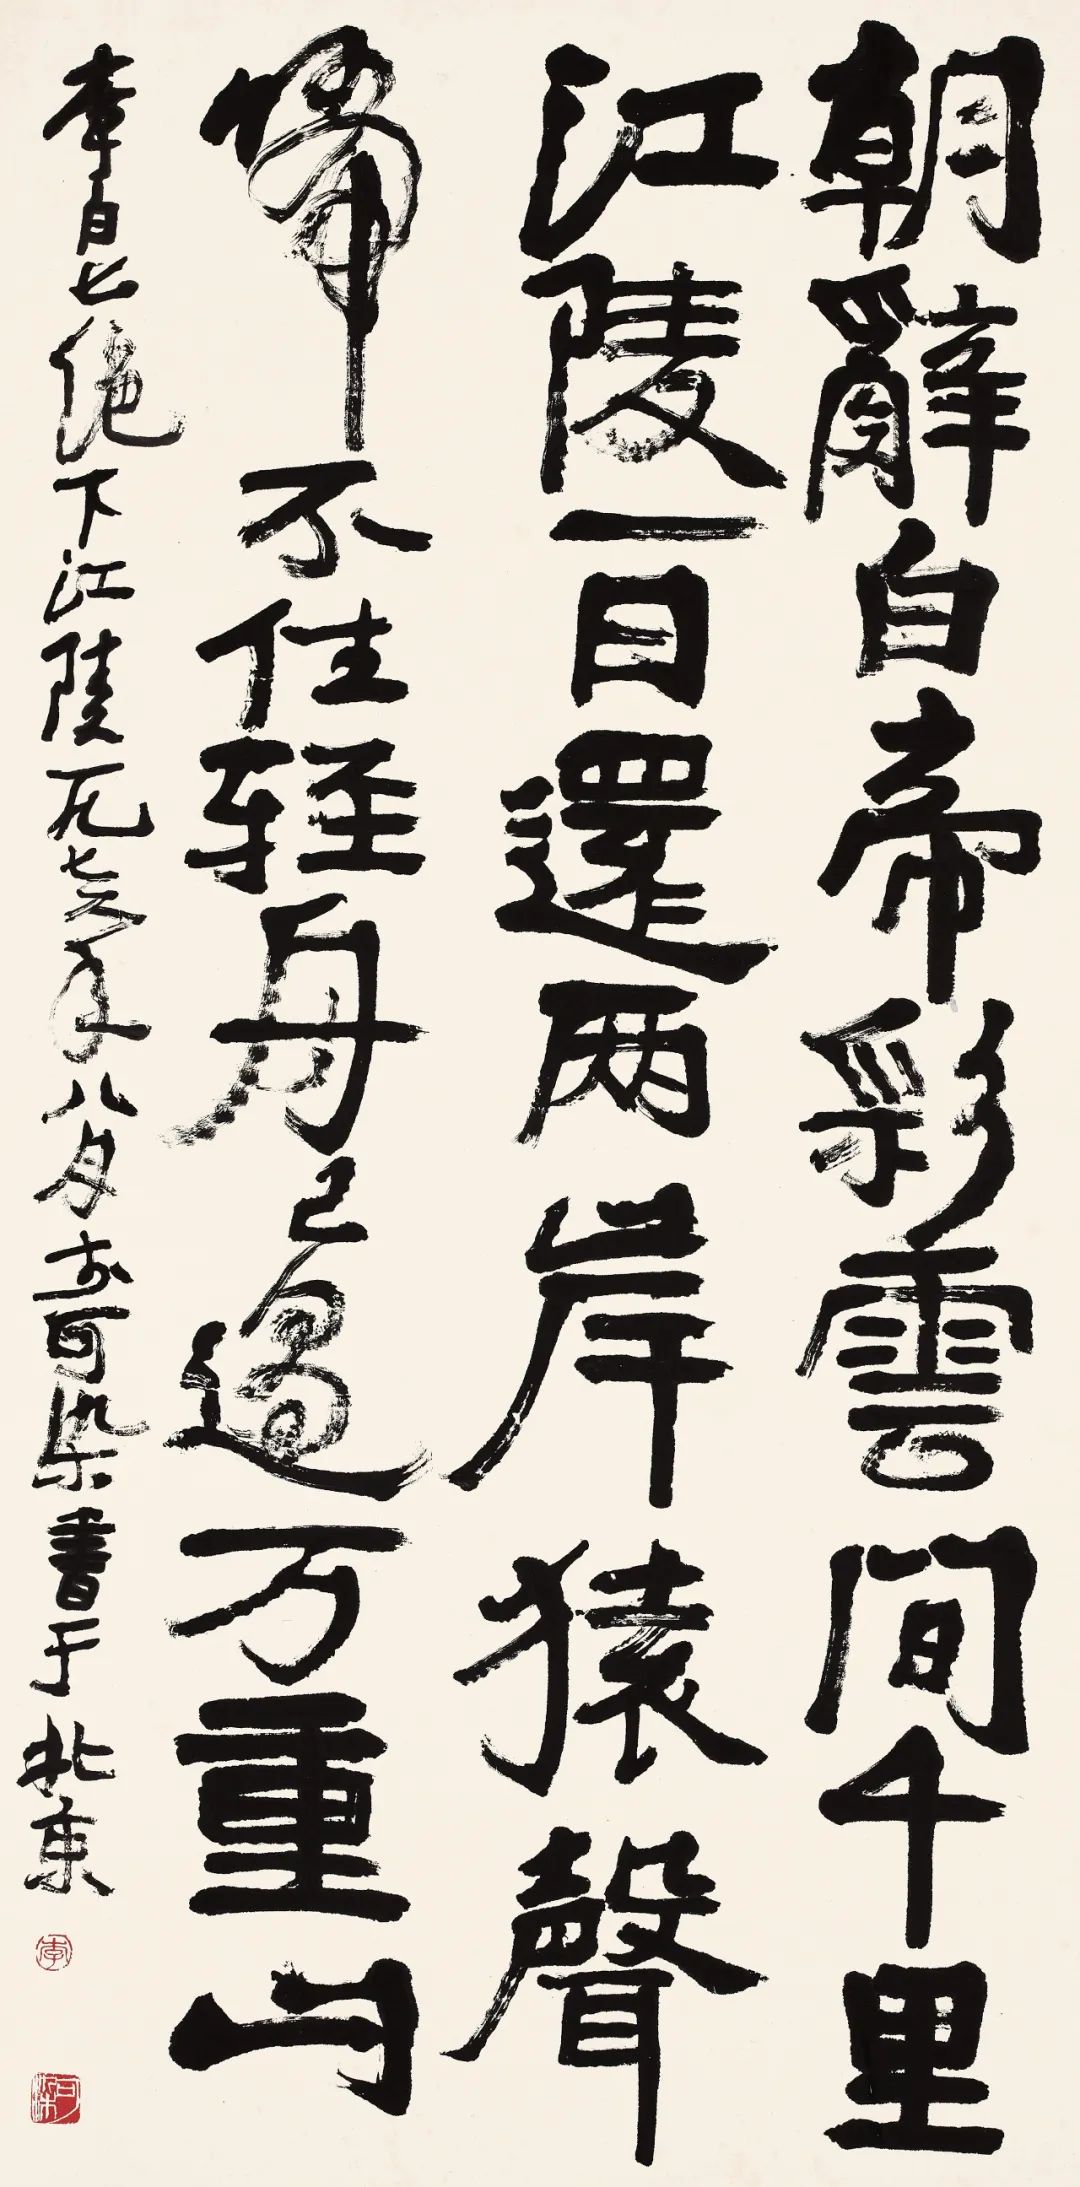 朝辭白帝彩雲間千里
江陵一日還两岸猿聲
啼不住轻舟已過万重山
李白七絕下江陵一九七六年八月李可染書于北京
李
可染